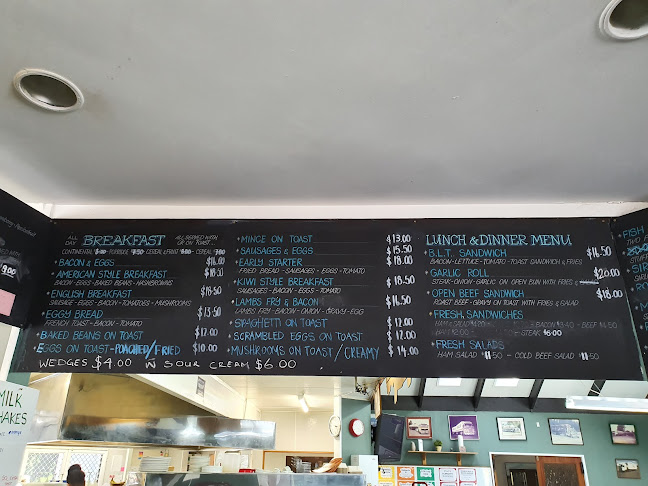 ALL DAY BREAKFAST ALL SERVED WITH OR ON TOAST...
BACON & EGGS $16.00
AMERICAN STYLE BREAKFAST
BACON - EGGS - BAKED BEANS - MUSHROOMS
ENGLISH BREAKFAST $18.50
SAUSAGE - EGGS - BACON - TOMATOES - MUSHROOMS
EGGY BREAD $13.50
FRENCH TOAST - BACON - TOMATO
BAKED BEANS ON TOAST $12.00
EGGS ON TOAST - POACHED/FRIED $10.00
WEDGES $4.00 W SOUR CREAM $6.00
MINCE ON TOAST $13.00
SAUSAGES & EGGS $15.50
EARLY STARTER $18.00
FRIED BREAD - SAUSAGES - EGGS - TOMATO
KIWI STYLE BREAKFAST $18.50
SAUSAGES - BACON - EGGS - TOMATO
LAMBS FRY & BACON $16.50
LAMBS FRY - BACON - ONION - GRAVY - EGG
SPAGHETTI ON TOAST $12.00
SCRAMBLED EGGS ON TOAST $12.00
MUSHROOMS ON TOAST / CREAMY $14.00
LUNCH & DINNER MENU
B.L.T. SANDWICH $16.50
BACON - LETTUCE - TOMATO - TOAST SANDWICH & FRIES
GARLIC ROLL $20.00
STEAK - ONION - GARLIC ON OPEN BUN WITH FRIES &
OPEN BEEF SANDWICH $18.00
ROAST BEEF - GRAVY ON TOAST WITH FRIES & SALAD
FRESH SANDWICHES
FRESH SALADS
HAM SALAD COLD BEEF SALAD
FISH
MILK
SHAKES